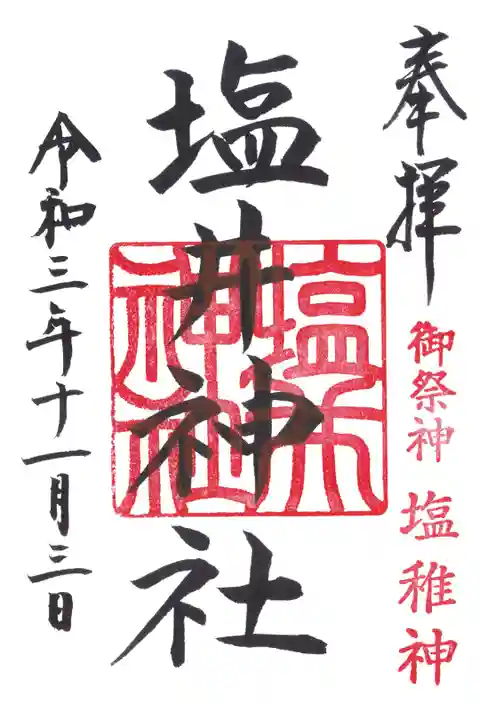 奉拝
御祭神 塩稚神
塩井神社
令和三年十一月三日